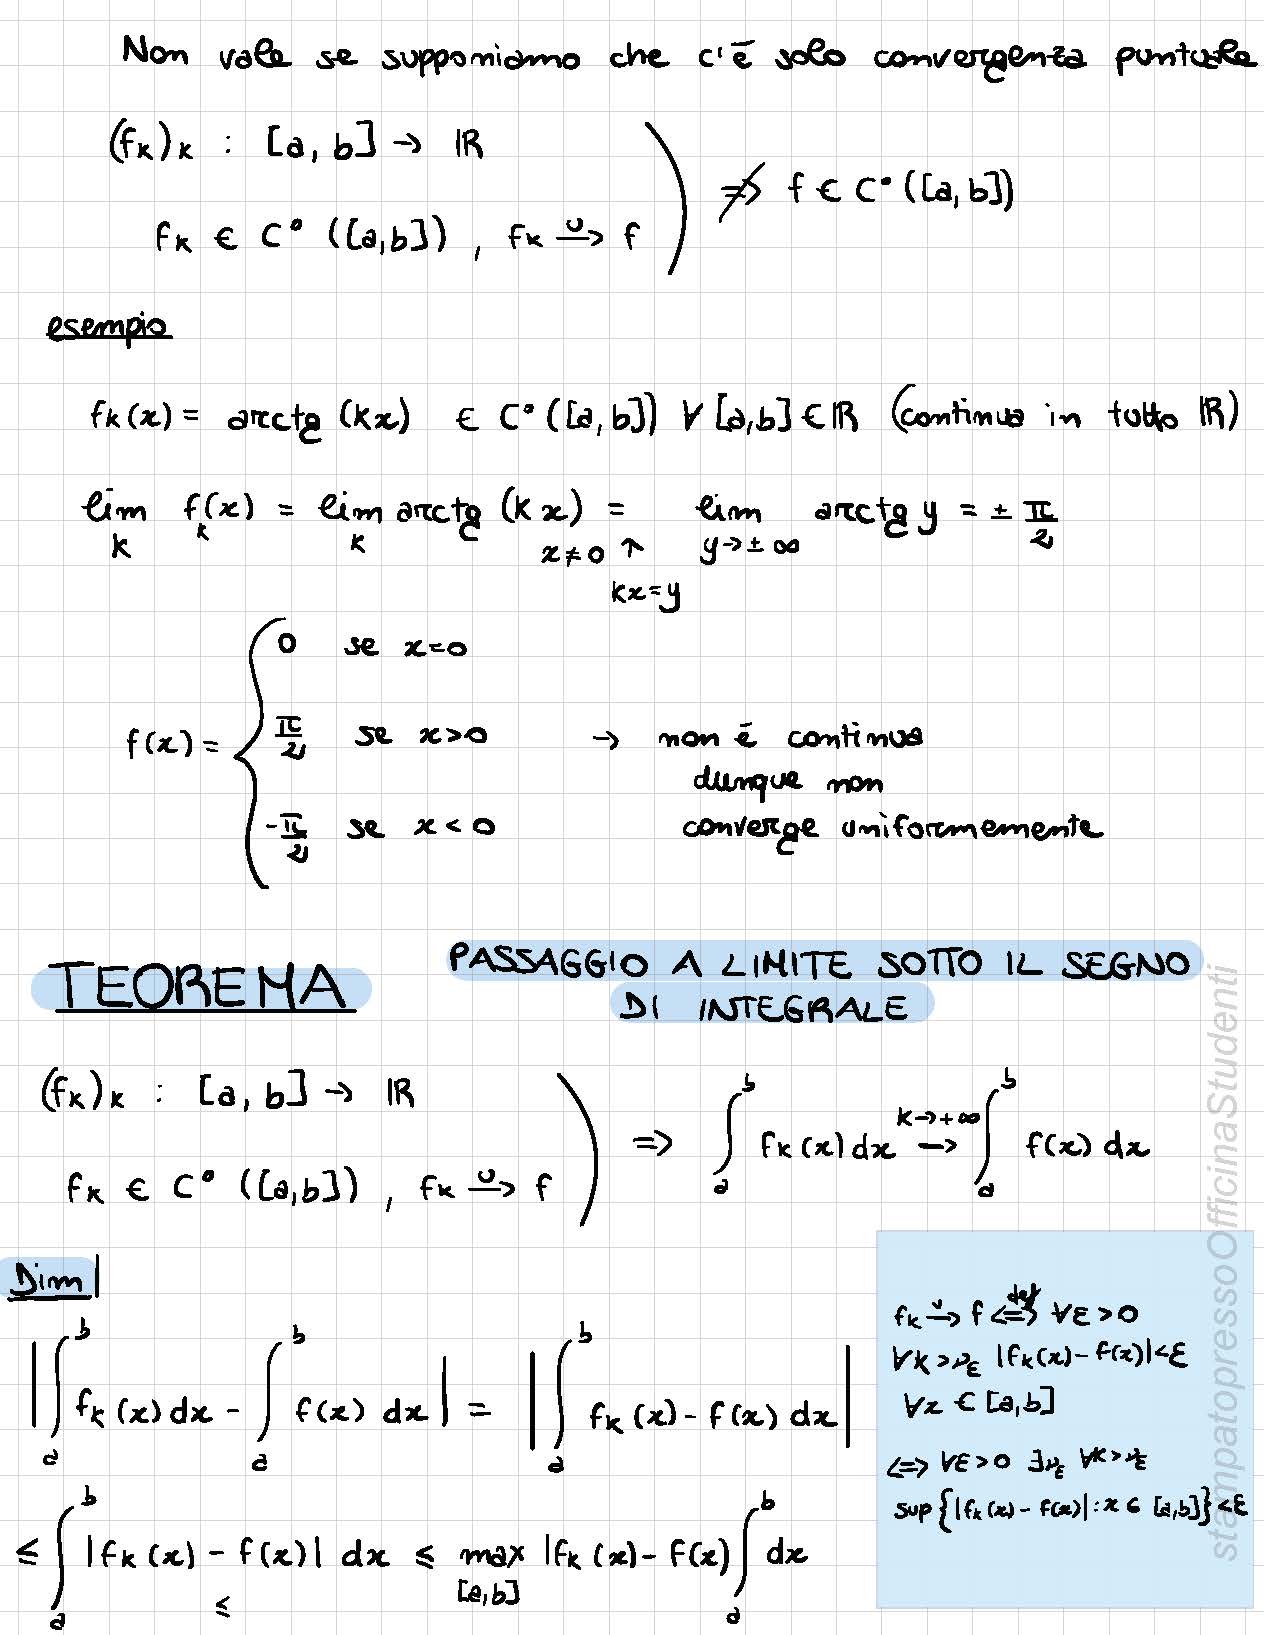 Non vale se supponiamo che c'è solo convergenza puntuale
(fₖ)ₖ : [a, b] → ℝ
fₖ ∈ C° ([a,b]) , fₖ —ᵘ→ f ) ⇏ f ∈ C° ([a, b])
esempio
fₖ(x) = arctg (kx) ∈ C° ([a, b]) ∀ [a,b] ∈ ℝ (continua in tutto ℝ)
lim_k fₖ(x) = lim_k arctg (k x) = lim_{y → ± ∞} arctg y = ± π/2
x ≠ 0 ↑
kx = y
0 se x=0
f(x) = { π/2 se x>0 → non è continua
dunque non
-π/2 se x < 0 converge uniformemente
TEOREMA PASSAGGIO A LIMITE SOTTO IL SEGNO
DI INTEGRALE
(fₖ)ₖ : [a, b] → ℝ
fₖ ∈ C° ([a,b]) , fₖ —ᵘ→ f ) ⇒ ∫_a^b fₖ(x) dx —(k→+∞)→ ∫_a^b f(x) dx
Dim|
| ∫_a^b fₖ(x) dx - ∫_a^b f(x) dx | = | ∫_a^b fₖ(x) - f(x) dx |
≤ ∫_a^b |fₖ(x) - f(x)| dx ≤ max_{[a,b]} |fₖ(x) - f(x) ∫_a^b dx
≤
fₖ —ᵘ→ f ⇔(def) ∀ε > 0
∀k > ν_ε |fₖ(x) - f(x)| < ε
∀x ∈ [a,b]
⇔ ∀ε > 0 ∃ν_ε ∀k > ν_ε
sup {|fₖ(x) - f(x)| : x ∈ [a,b]} < ε
stampatopressoOfficinaStudenti